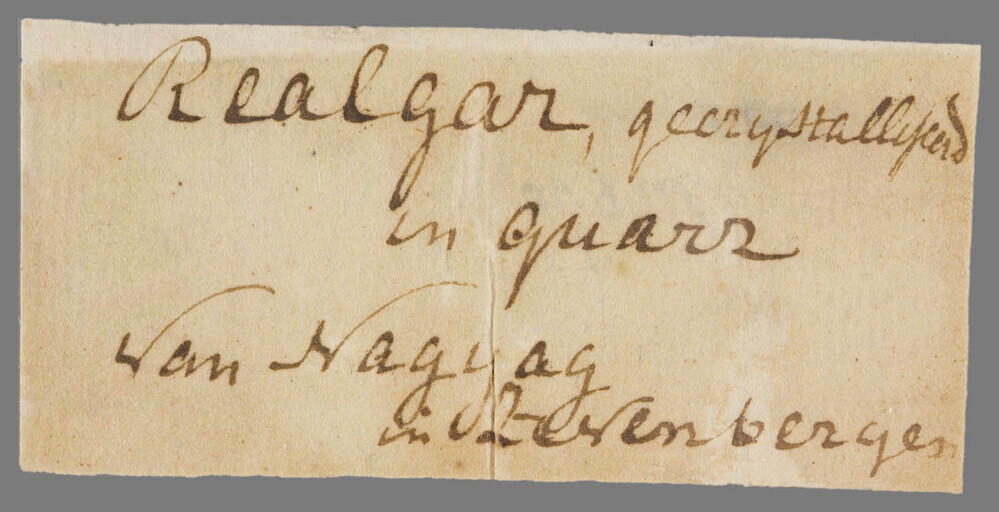 Realgar, gecrystalliseerd
in quarz
Van Nagyag
in Zevenbergen